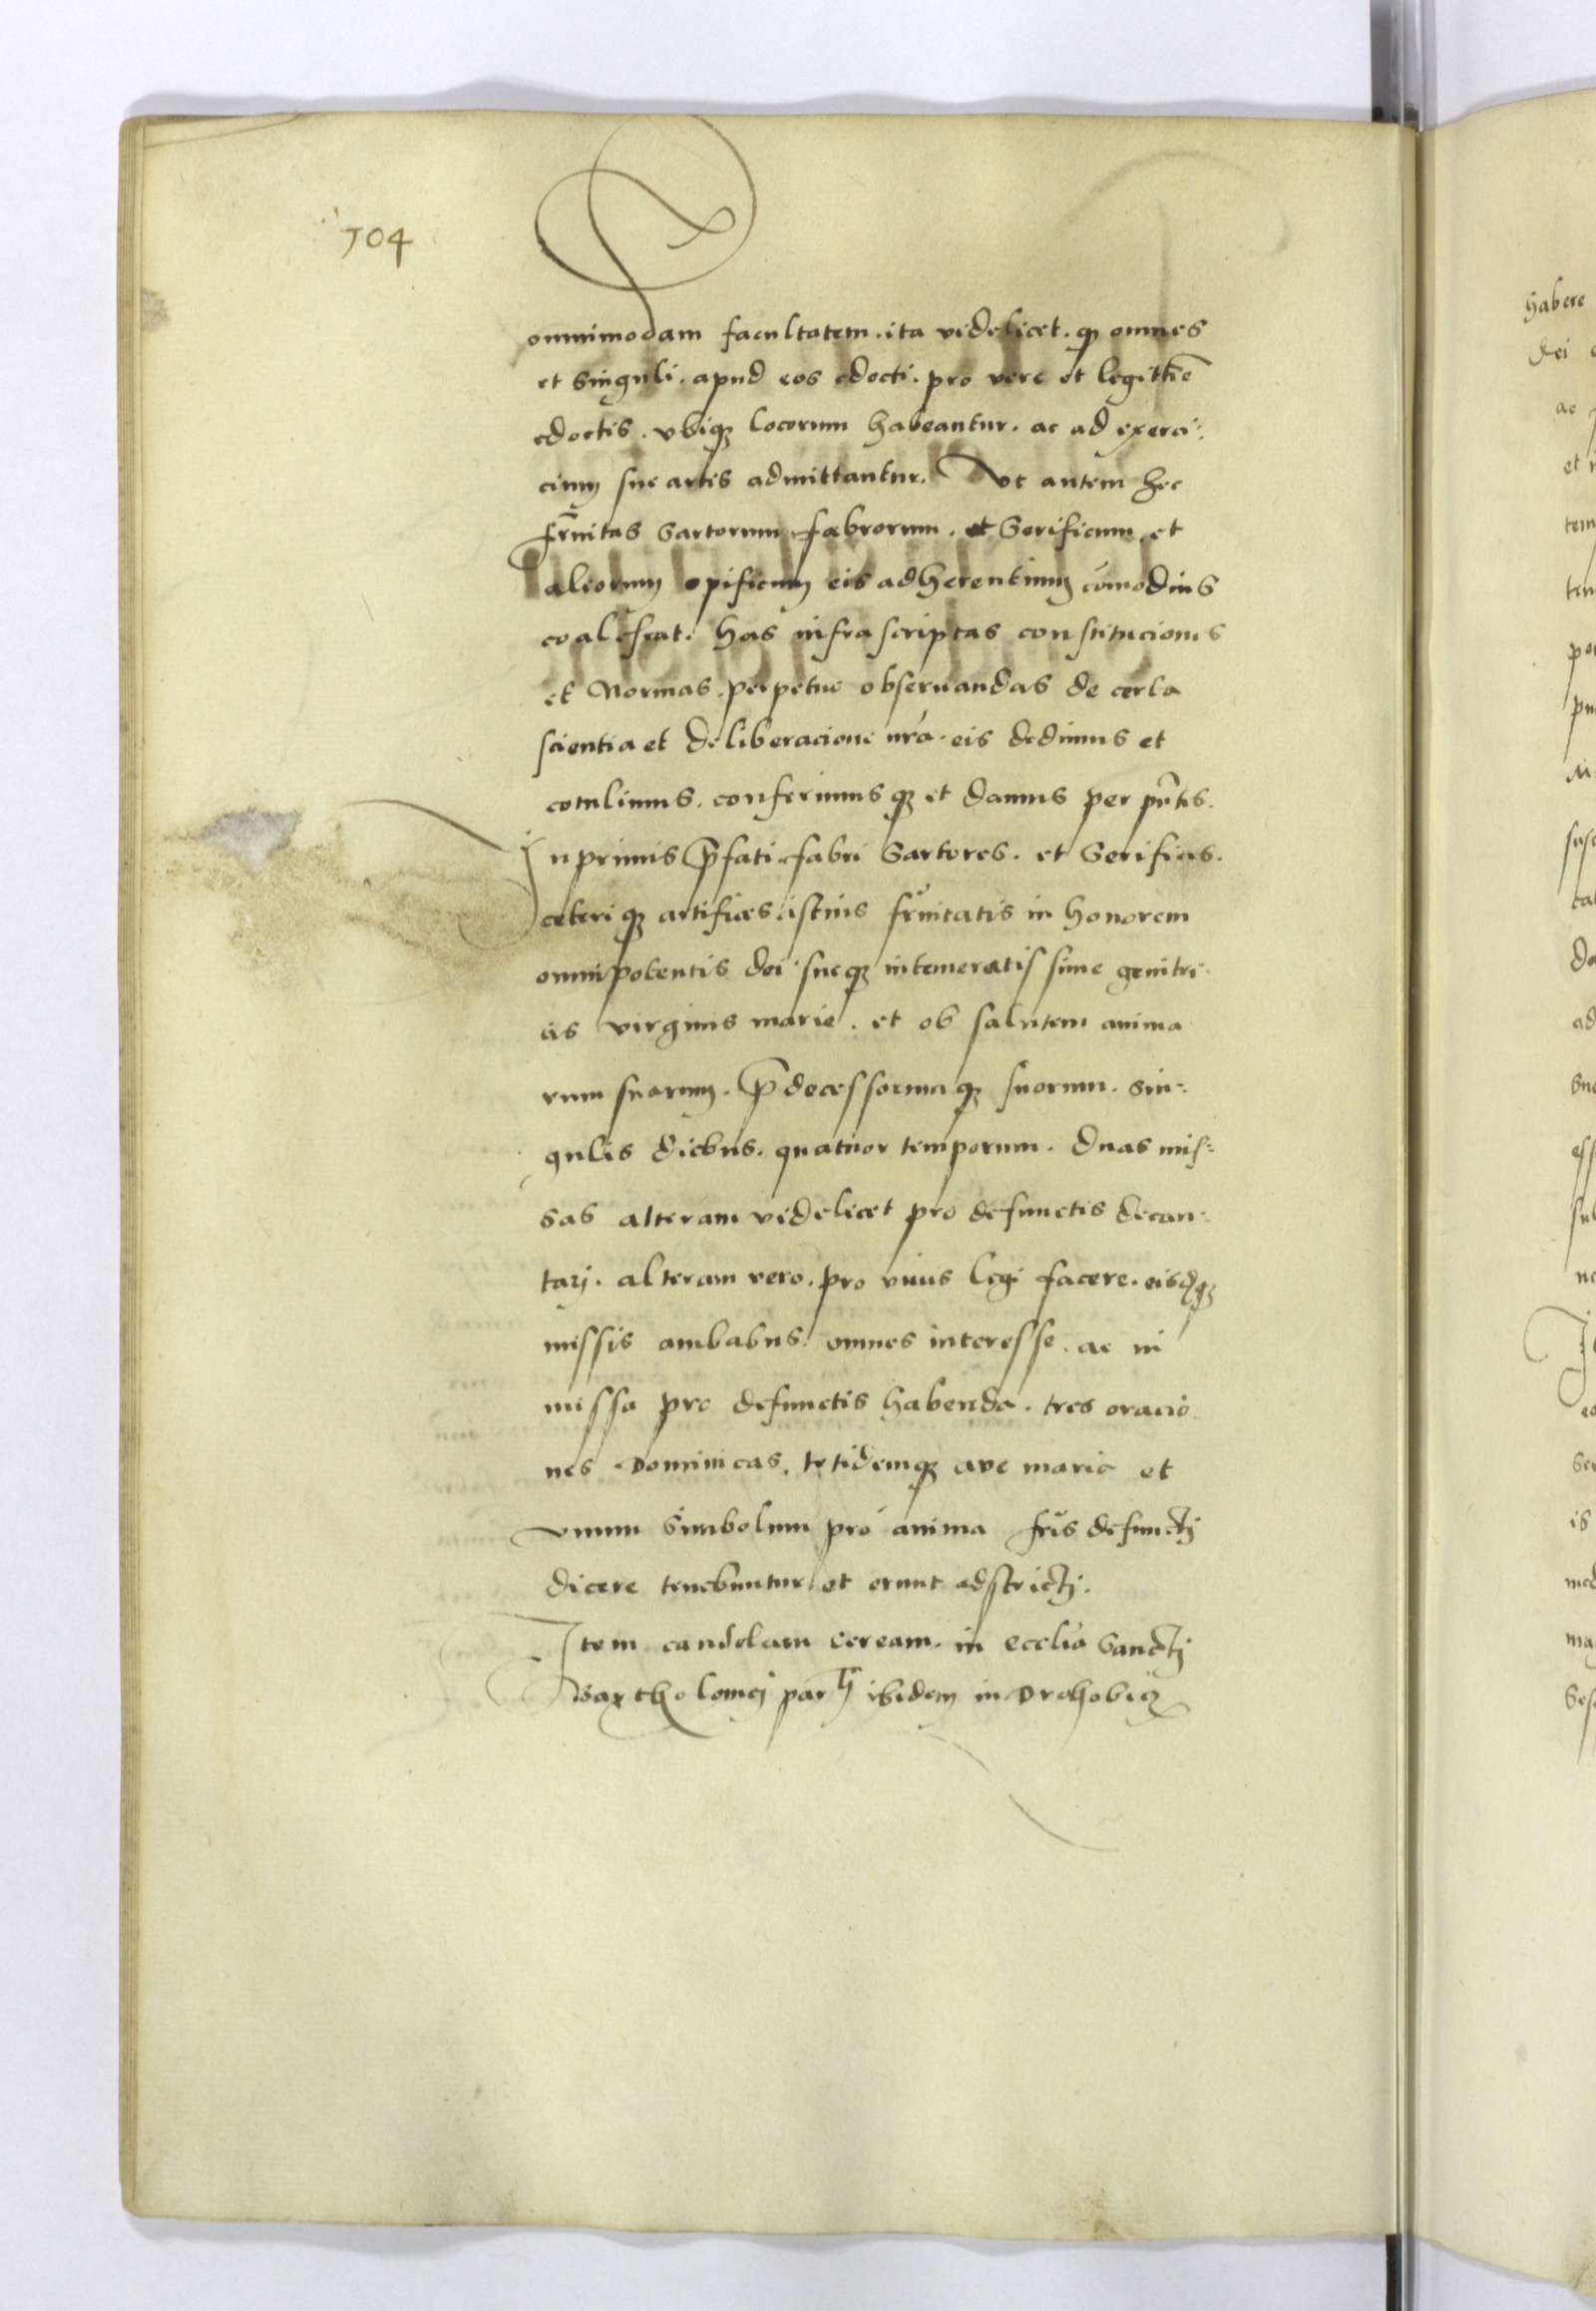 104
omnimodam facultatem. ita videlicet. qp omnes
et singuli. apud eos edocti. pro vere et legittie
edoctis. vbiqz locorum habeantur. ac ad exerci-
cium sue artis admittantur. Vt autem hec
frnitas Sartorum fabrorum. et Serificum et
aliorum opificum eis adherentium comodius
coalescat. has infrascriptas constituciones
et Normas. perpetuo obseruandas de certa
scientia et deliberacione nra. eis dedimus et
cotulimus. conferimusqz et damus per pntes.
Inprimis pfati fabri Sartores. et Serifices.
ceteriqz artifices istius frnitatis in honorem
omnipotentis dei sueqz intemeratissime genitri-
cis virginis marie. et ob salutem anima
rum suarum. pdecessorumqz suorum. sin-
gulis diebus. quatuor temporum. duas mis-
sas alteram videlicet pro defunctis decan-
tarj. alteram vero. pro viuis legi facere. eisdqz
missis ambabus. omnes interesse. ac in
missa pro defunctis habenda. tres oracio
nes Dominicas. totidemqz ave maria et
vnum Simbolum pro anima fris defunctj
dicere tenebuntur et erunt adstrictj.
Item candelam ceream. in ecclia Sanctj
Bartholomej parh ibidem in Drohobicz
habere
dei
ac
et